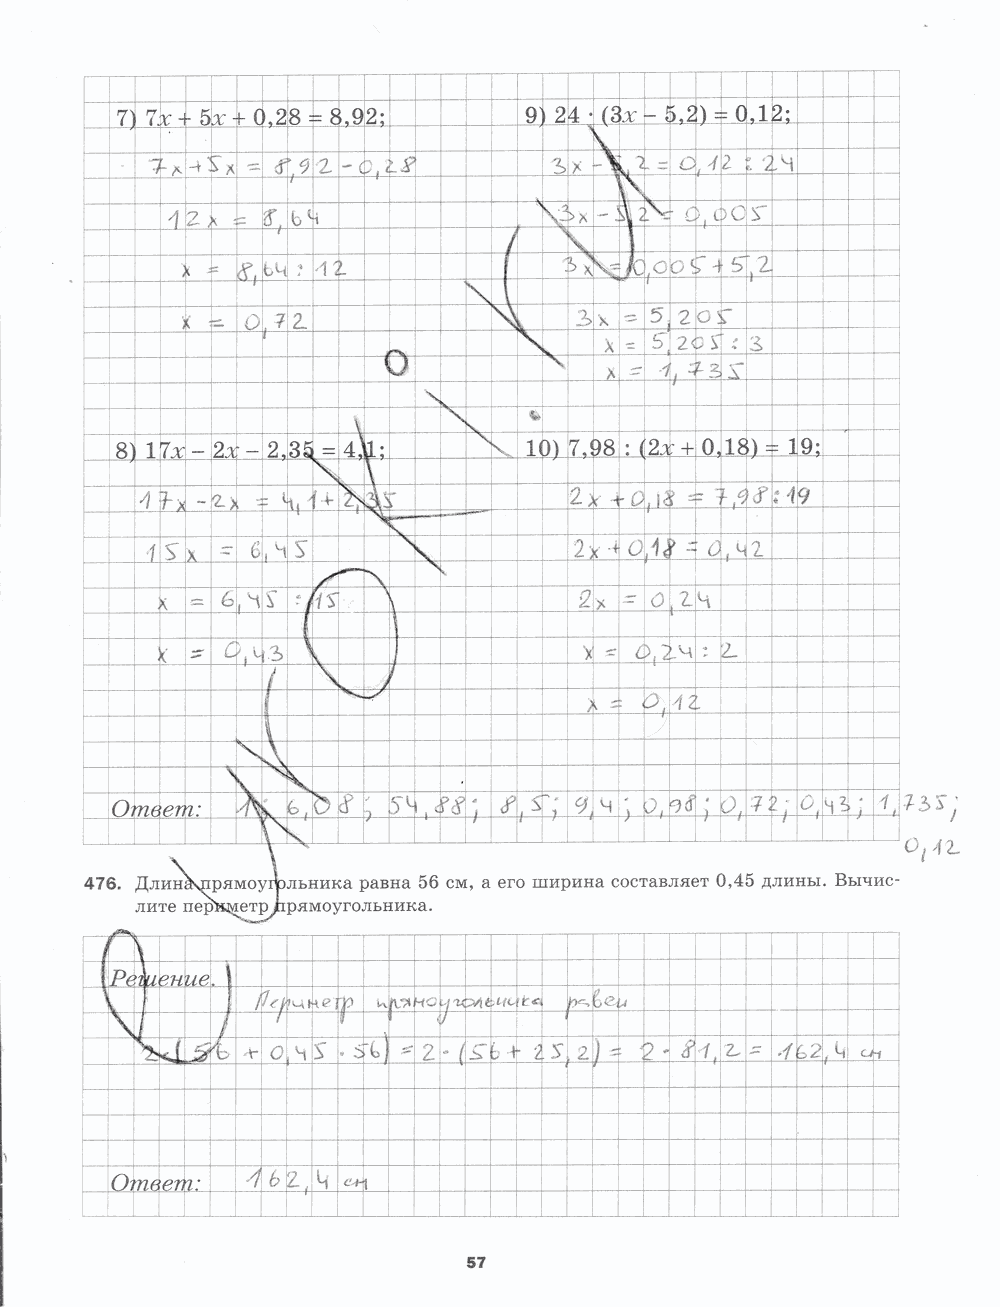 7) 7x + 5x + 0,28 = 8,92;
7x + 5x = 8,92 - 0,28
12x = 8,64
x = 8,64 : 12
x = 0,72
9) 24 · (3x – 5,2) = 0,12;
3x - 5,2 = 0,12 : 24
3x - 5,2 = 0,005
3x = 0,005 + 5,2
3x = 5,205
x = 5,205 : 3
x = 1,735
8) 17x – 2x – 2,35 = 4,1;
17x - 2x = 4,1 + 2,35
15x = 6,45
x = 6,45 : 15
x = 0,43
10) 7,98 : (2x + 0,18) = 19;
2x + 0,18 = 7,98 : 19
2x + 0,18 = 0,42
2x = 0,24
x = 0,24 : 2
x = 0,12
Ответ: 1; 6,08; 54,88; 8,5; 9,4; 0,98; 0,72; 0,43; 1,735;
0,12
476. Длина прямоугольника равна 56 см, а его ширина составляет 0,45 длины. Вычис-
лите периметр прямоугольника.
Решение.
Периметр прямоугольника равен
2 · (56 + 0,45 · 56) = 2 · (56 + 25,2) = 2 · 81,2 = 162,4 см
Ответ: 162,4 см
57